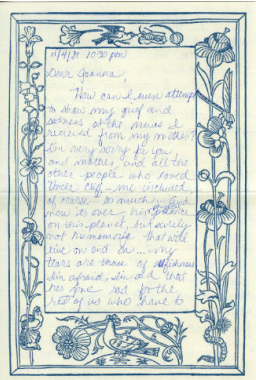 11/4/81 10:30 pm
Dear Joanna,
How can I even attempt
to show my grief and
sadness at the news I
received from my mother?
I'm very sorry for you
and mother, and all the
other people who loved
Uncle ... me included
of course so much. And
now its over, his existence
on this planet, but surely
not his memories that will
live on and on ... my
tears are those of
I'm afraid, I'm sad that
hes gone sad for the
rest of us who have to